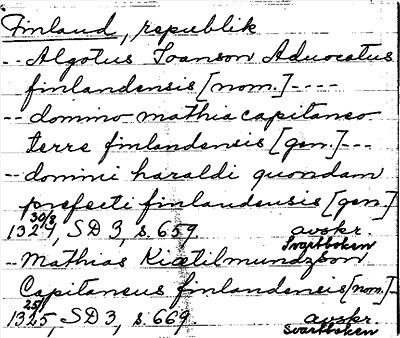 Finland, republik
-- Algotus Joanson Aduocatus
finlandensis [nom.] ----
-- domino mathia capitaneo
terre finlandensis [gen.] ---
-- domini haraldi quondam
prefecti finlandensis [gen.]
30/8
1324, SD 3, s. 659 avskr.
Svartboken
-- Mathias Kiætilmundzson
Capitaneus finlandensis [nom.] -
25/1
1325, SD 3, s. 669 avskr.
Svartboken